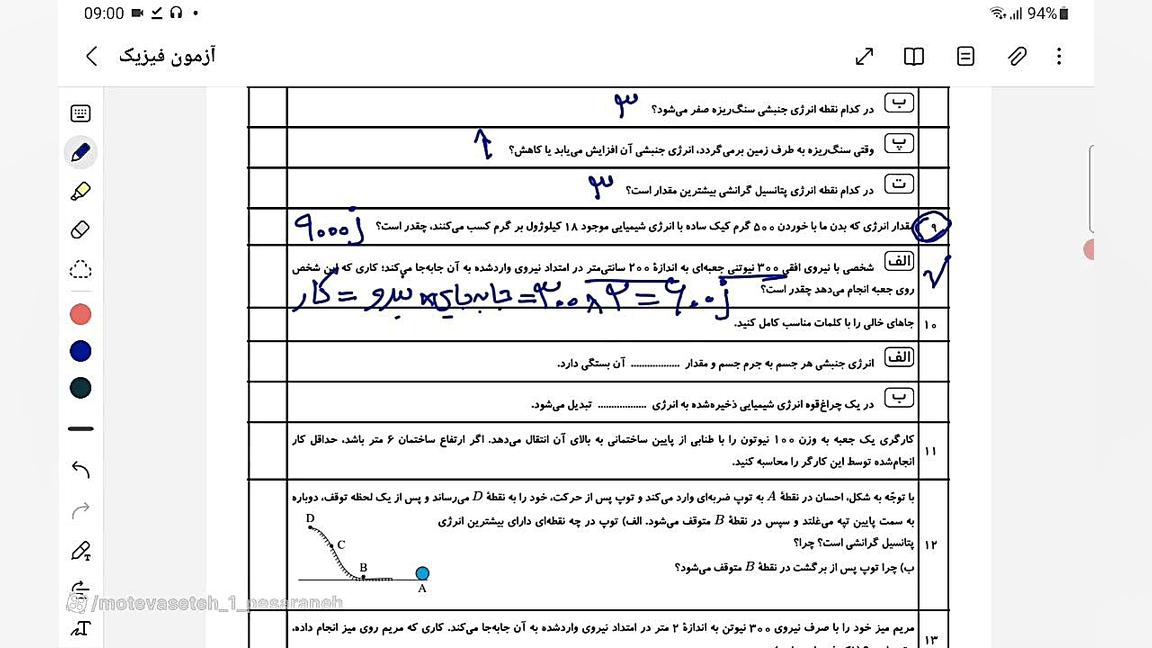 09:00
94%
آزمون فیزیک
ب در کدام نقطه انرژی جنبشی سنگ‌ریزه صفر می‌شود؟ ۳
پ وقتی سنگ‌ریزه به طرف زمین برمی‌گردد، انرژی جنبشی آن افزایش می‌یابد یا کاهش؟ ↑
ت در کدام نقطه انرژی پتانسیل گرانشی بیشترین مقدار است؟ ۳
۹ مقدار انرژی که بدن ما با خوردن ۵۰۰ گرم کیک ساده با انرژی شیمیایی موجود ۱۸ کیلوژول بر گرم کسب می‌کنند، چقدر است؟ ۹۰۰۰ j
الف شخصی با نیروی افقی ۳۰۰ نیوتنی جعبه‌ای به اندازهٔ ۲۰۰ سانتی‌متر در امتداد نیروی واردشده به آن جابه‌جا می‌کند؛ کاری که این شخص
روی جعبه انجام می‌دهد چقدر است؟
کار = نیرو × جابه‌جایی =
۱۰ جاهای خالی را با کلمات مناسب کامل کنید.
الف انرژی جنبشی هر جسم به جرم جسم و مقدار .................. آن بستگی دارد.
ب در یک چراغ‌قوه انرژی شیمیایی ذخیره‌شده به انرژی .................. تبدیل می‌شود.
۱۱ کارگری یک جعبه به وزن ۱۰۰ نیوتون را با طنابی از پایین ساختمانی به بالای آن انتقال می‌دهد. اگر ارتفاع ساختمان ۶ متر باشد، حداقل کار
انجام‌شده توسط این کارگر را محاسبه کنید.
۱۲ با توجّه به شکل، احسان در نقطهٔ A به توپ ضربه‌ای وارد می‌کند و توپ پس از حرکت، خود را به نقطهٔ D می‌رساند و پس از یک لحظه توقف، دوباره
به سمت پایین تپه می‌غلتد و سپس در نقطهٔ B متوقف می‌شود. الف) توپ در چه نقطه‌ای دارای بیشترین انرژی
پتانسیل گرانشی است؟ چرا؟
ب) چرا توپ پس از برگشت در نقطهٔ B متوقف می‌شود؟
D
C
B
A
/motevaseteh_1_pesaraneh
۱۳ مریم میز خود را با صرف نیروی ۳۰۰ نیوتن به اندازهٔ ۲ متر در امتداد نیروی واردشده به آن جابه‌جا می‌کند. کاری که مریم روی میز انجام داده،